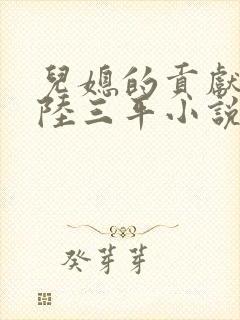 兒媳的貢獻
陸三年小說
癸芽芽